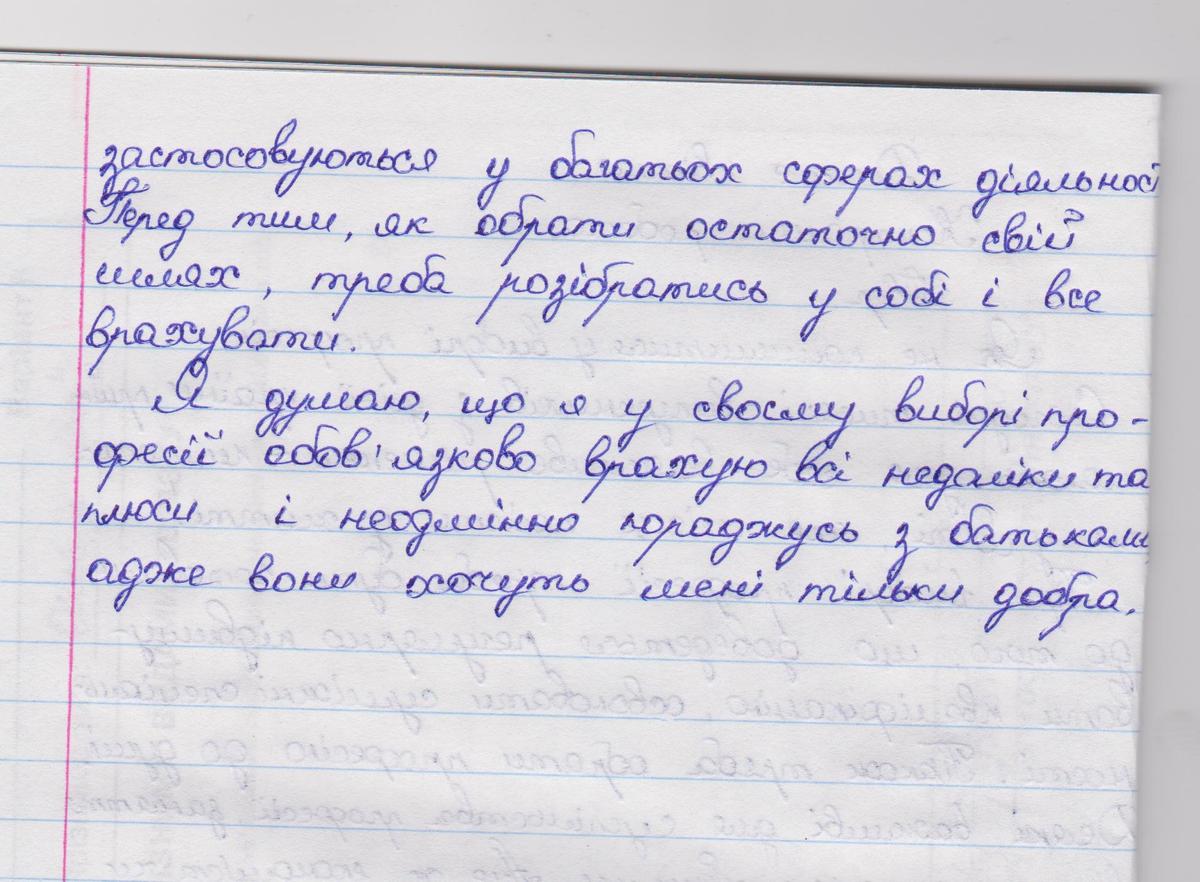 застосовуються у багатьох сферах діяльності
Перед тим, як обрати остаточно свій
шлях, треба розібратись у собі і все
врахувати.
Я думаю, що я у своєму виборі про-
фесії обов'язково врахую всі недоліки та
плюси і неодмінно пораджусь з батьками,
адже вони хочуть мені тільки добра.